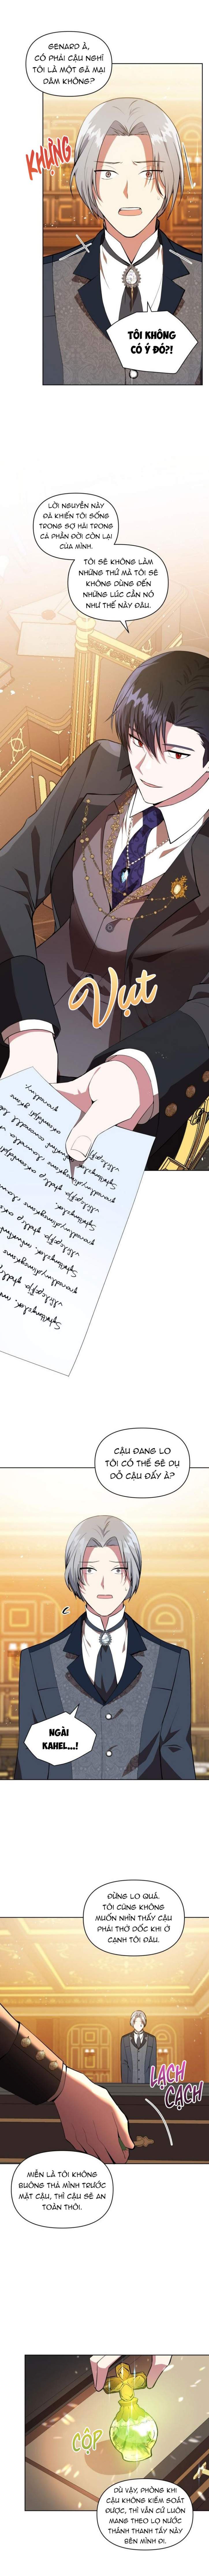 GENARD À,
CÓ PHẢI CẬU NGHĨ
TÔI LÀ MỘT GÃ MẠI
DÂM KHÔNG?
KHỰNG
TÔI KHÔNG
CÓ Ý ĐÓ?!
LỜI NGUYỀN NÀY
ĐÃ KHIẾN TÔI SỐNG
TRONG SỢ HÃI TRONG
CẢ PHẦN ĐỜI CÒN LẠI
CỦA MÌNH.
TÔI SẼ KHÔNG LÀM
NHỮNG THỨ MÀ TÔI SẼ
KHÔNG DÙNG ĐẾN
NHỮNG LÚC CẦN NÓ
NHƯ THẾ NÀY ĐÂU.
VỤT
CẬU ĐANG LO
TÔI CÓ THỂ SẼ DỤ
DỖ CẬU ĐẤY À?
NGÀI
KAHEL...!
ĐỪNG LO QUÁ.
TÔI CŨNG KHÔNG
MUỐN NHÌN THẤY CẬU
PHẢI THỞ DỐC KHI Ở
CẠNH TÔI ĐÂU.
LẠCH
CẠCH
MIỄN LÀ TÔI KHÔNG
BUÔNG THẢ MÌNH TRƯỚC
MẶT CẬU, THÌ CẬU SẼ AN
TOÀN THÔI.
CỘP
DÙ VẬY, PHÒNG KHI
CẬU KHÔNG KIỂM SOÁT
ĐƯỢC, THÌ VẪN CỨ LUÔN
MANG THEO LỌ NƯỚC
THÁNH THANH TẨY NÀY
BÊN MÌNH ĐI.